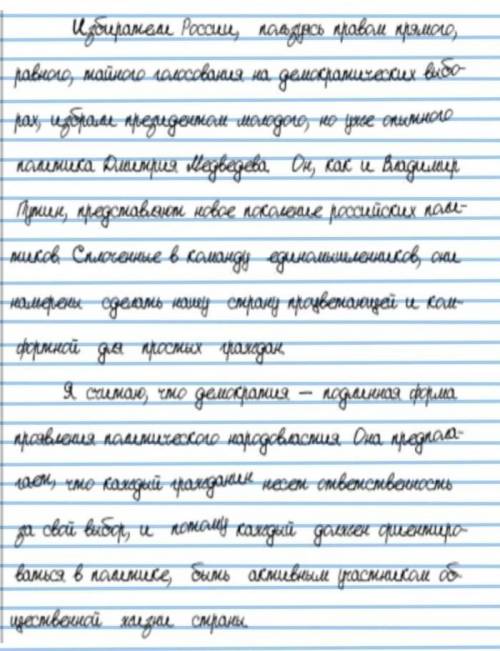 Избиратели России, пользуясь правом прямого,
равного, тайного голосования на демократических выбо-
рах, избрали президентом молодого, но уже опытного
политика Дмитрия Медведева. Он, как и Владимир
Путин, представляют новое поколение российских поли-
тиков. Сплоченные в команду единомышленников, они
намерены сделать нашу страну процветающей и ком-
фортной для простых граждан.
Я считаю, что демократия — подлинная форма
проявления политического народовластия. Она предпола-
гает, что каждый гражданин несет ответственность
за свой выбор, и потому каждый должен ориентиро-
ваться в политике, быть активным участником об-
щественной жизни страны.